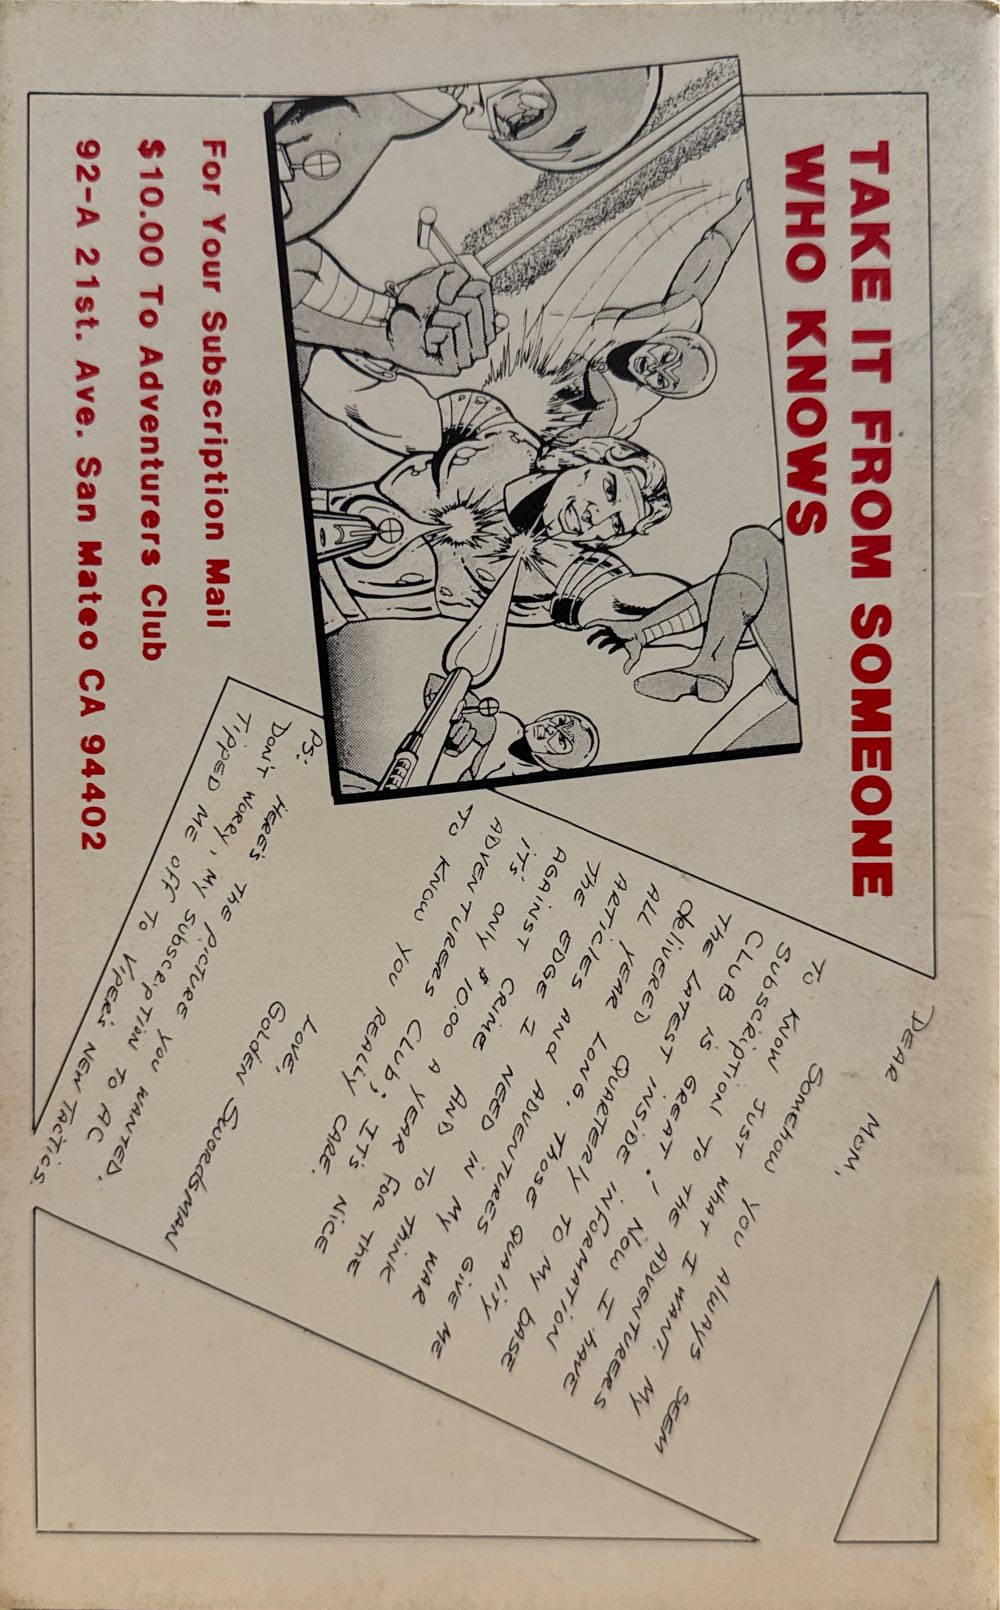 TAKE IT FROM SOMEONE
WHO KNOWS
DEAR MOM,
SOMEHOW YOU ALWAYS SEEM
TO KNOW JUST WHAT I WANT. MY
SUBSCRIPTION TO THE ADVENTURERS
CLUB IS GREAT! NOW I HAVE
THE LATEST INSIDE INFORMATION
delivered QUARTERLY TO MY BASE
ALL YEAR LONG. THOSE QUALITY
ARTICLES AND ADVENTURES GIVE ME
THE EDGE I NEED IN MY WAR
AGAINST CRIME AND TO THINK
IT'S ONLY $10.00 A YEAR FOR THE
ADVENTURERS CLUB; IT'S NICE
TO KNOW YOU REALLY CARE.
LOVE,
Golden Swordsman
PS:
HERE'S THE PICTURE YOU WANTED.
DON'T WORRY, MY SUBSCRIPTION TO AC
TIPPED ME OFF TO VIPER'S NEW TACTICS.
For Your Subscription Mail
$10.00 To Adventurers Club
92-A 21st. Ave. San Mateo CA 94402